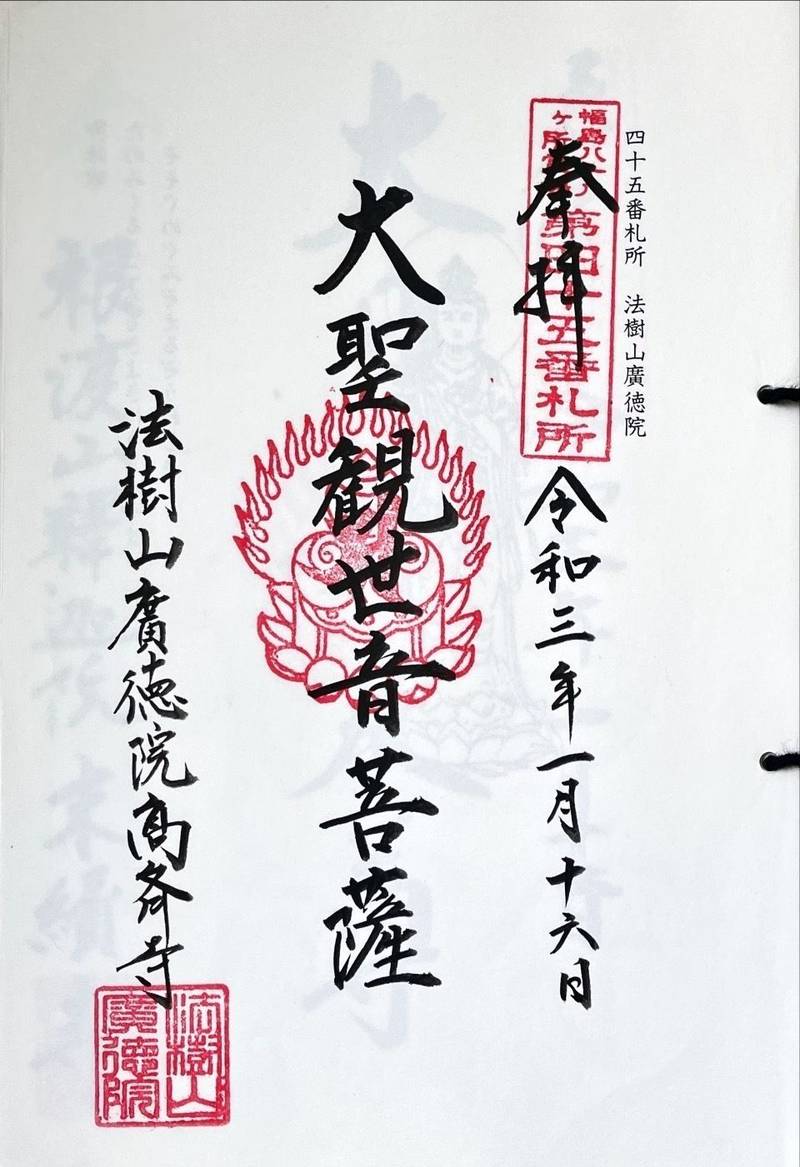 四十五番札所　法樹山廣徳院
第四十五番札所
奉拝
令和三年一月十六日
大聖観世音菩薩
法樹山廣徳院髙斉寺
法樹山
廣徳院